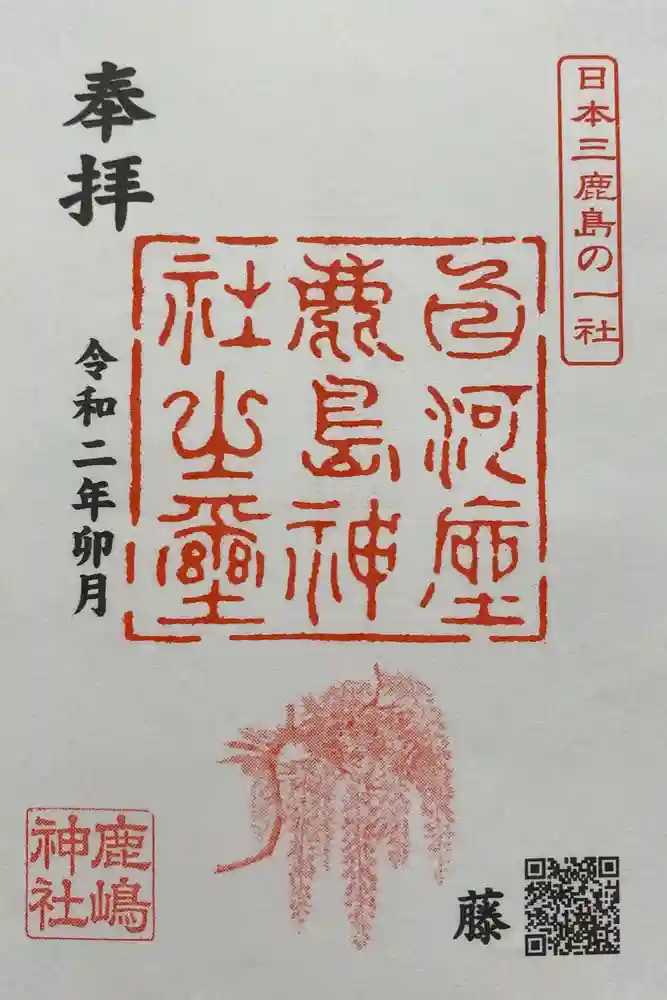 日本三鹿島の一社
奉拝
白河座
鹿島神
社之璽
令和二年卯月
藤
鹿嶋
神社